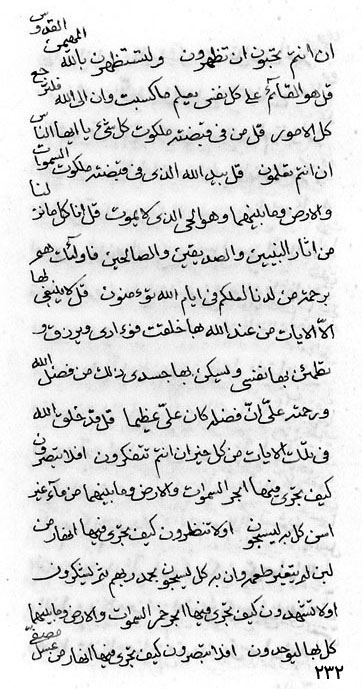 ان انتم تحبون ان تظهرون ولتستظهرن بالله المهيمن القدوس
قل هو القائم على كل نفس يعلم ما كسبت وان الى الله فلترجع
كل الامور قل من فى قبضته ملكوت كل شئ يا ايها الناس
ان انتم تعلمون قل بيد الله الذى فى قبضته ملكوت السموات
والارض وما بينهما وهو الحى الذى لا يموت قل انا كل ما نزلنا
من اثار النبيين والصديقين والصالحين فاولئك هم
برحمة من لدنا لعلكم فى ايام الله تؤمنون قل لا ينبغى لها
الا الايات من عند الله ها خلقت فؤادى ويرزق و
تطمئن بها نفسى ويسكن بها جسدى ذلك من فضل الله
ورحمته على ان فضله كان على عظيما قل قد خلق الله
فى تلك الايات من كل خير ان انتم تتفكرون افلا تبصرون
كيف يجرى فيها ابحر السموات والارض وما بينهما من ماء غير
اسن كل به ليسبحون اولا تنظرون كيف يجرى فيها انهار من
لبن لم يتغير طعمه وان به كل ليسبحون بحمد ربهم ثم ليشكرون
اولا تشهدون كيف يجرى فيها ابحر خمر السموات والارض وما بينهما
كل بها ليوحدون افلا تبصرون كيف يجرى فيها انهار من عسل مصفى
٢٣٢